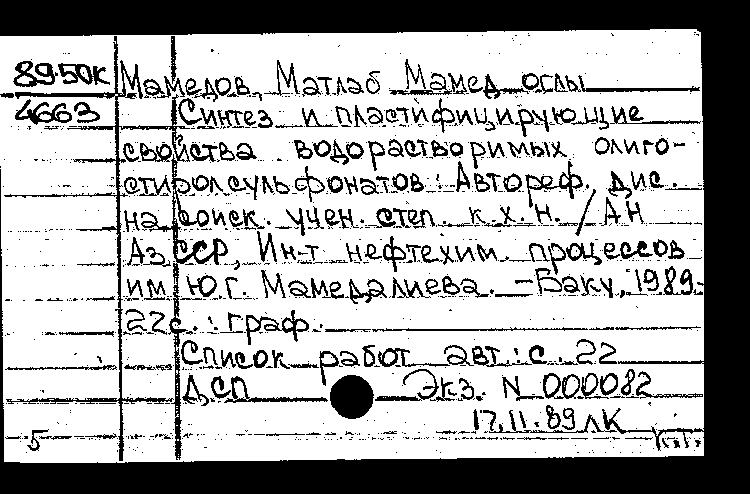 89-50К Мамедов, Матлаб Мамед оглы
4663 Синтез и пластифицирующие
свойства водорастворимых олиго-
стиролсульфонатов : Автореф. дис.
на соиск. учен. степ. к.х.н. / АН
АзССР, Ин-т нефтехим. процессов
им Ю.Г. Мамедалиева. - Баку, 1989.-
22с. : граф.
Список работ авт.: с. 22
ДСП Экз. N 000082
17.11.89 ЛК
5